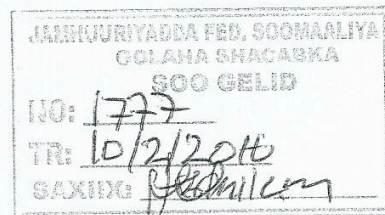 JAMHUURIYADDA FED. SOOMAALIYA
GOLAHA SHACABKA
SOO GELID
NO: 1777
TR: 10/2/2016
SAXIIX: